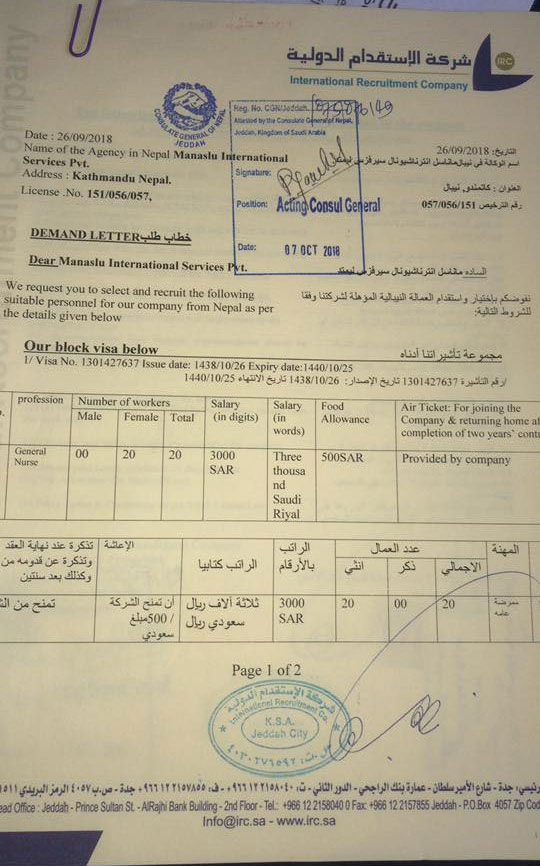 شركة الإستقدام الدولية
International Recruitment Company
IRC
CONSULATE GENERAL OF NEPAL
JEDDAH
Reg. No. CGN/Jeddah.
Attested by the Consulate General of Nepal,
Jeddah, Kingdom of Saudi Arabia
Signature:
Position: Acting Consul General
Date: 07 OCT 2018
Date : 26/09/2018
التاريخ: 26/09/2018
Name of the Agency in Nepal Manaslu International
Services Pvt.
اسم الوكالة في نيبال ماناسل انترناشيونال سيرفزس ليمتد
Address : Kathmandu Nepal.
العنوان : كاتمندو نيبال
License .No. 151/056/057,
رقم الترخيص 057/056/151
DEMAND LETTER خطاب طلب
Dear Manaslu International Services Pvt.
الساده ماناسل انترناشيونال سيرفزس ليمتد
We request you to select and recruit the following
suitable personnel for our company from Nepal as per
the details given below
نفوضكم بإختيار واستقدام العمالة النيبالية المؤهلة لشركتنا وفقا
للشروط التالية:
Our block visa below
مجموعة تأشيراتنا أدناه
1/ Visa No. 1301427637 Issue date: 1438/10/26 Expiry date:1440/10/25
/رقم التأشيرة 1301427637 تاريخ الإصدار: 1438/10/26 تاريخ الانتهاء 1440/10/25
profession
Number of workers
Male Female Total
Salary
(in digits)
Salary
(in
words)
Food
Allowance
Air Ticket: For joining the
Company & returning home
completion of two years'
General
Nurse
00 20 20
3000
SAR
Three
thousa
nd
Saudi
Riyal
500SAR
Provided by company
المهنة
عدد العمال
الاجمالي ذكر انثي
الراتب
بالأرقام
الراتب كتابيا
الإعاشة
تذكرة عند نهاية العقد
وتذكرة عن قدومه من
وكذلك بعد سنتين
ممرضة
عامه
20 00 20
3000
SAR
ثلاثة آلاف ريال
سعودي ريال
أن تمنح الشركة
/ 500مبلغ
سعودي
تمنح من
Page 1 of 2
شركة الإستقدام الدولية
International Recruitment Co.
K.S.A.
Jeddah City
جدة - شارع الأمير سلطان - عمارة بنك الراجحي - الدور الثاني - ت: ٩٦٦١٢٢١٥٨٠٤٠+ - ف: ٩٦٦١٢٢١٥٧٨٥٥+ جدة - ص.ب ٤٠٥٧ الرمز البريدي
Head Office : Jeddah - Prince Sultan St. - AlRajhi Bank Building - 2nd Floor - Tel.: +966 12 2158040 0 Fax: +966 12 2157855 Jeddah - P.O.Box 4057 Zip
Info@irc.sa - www.irc.sa